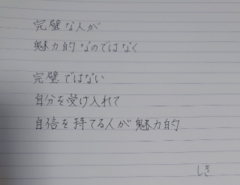 完璧な人が
魅力的なのではなく
完璧ではない
自分を受け入れて
自信を持てる人が魅力的
しき